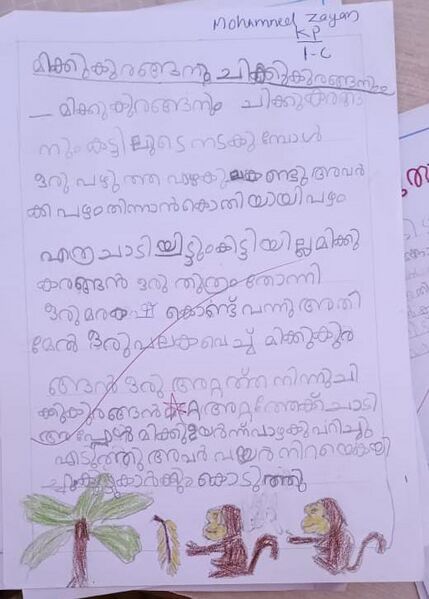 Mohammed Zayan
KP
1-C
മിക്കുകുരങ്ങനും ചിക്കുകുരങ്ങനും
മിക്കുകുരങ്ങനും ചിക്കുകുരങ്ങ
നും കാട്ടിലൂടെ നടക്കുമ്പോൾ
ഒരു പഴുത്ത വാഴകുല കണ്ടു അവർ
ക്ക് പഴം തിന്നാൻ കൊതിയായി പഴം
എത്ര ചാടിയിട്ടും കിട്ടിയില്ല മിക്കു
കുരങ്ങൻ ഒരു തുത്രം തോന്നി
ഒരു മരകഷ് കൊണ്ട് വന്നു അതി
മേൽ ഒരു പലക വെച്ച് മിക്കുകുര
ങ്ങൻ ഒരു അറ്റത്ത് നിന്നു ചി
ക്കുകുരങ്ങൻ മറ്റേ അറ്റത്തേക്ക് ചാടി
അപ്പോൾ മിക്കു ഉയർന്ന് വാഴകുല പറിച്ചു
എടുത്തു അവർ വയർ നിറയെ കഴി
ച്ചു കൂട്ടുകാർക്കും കൊടുത്തു